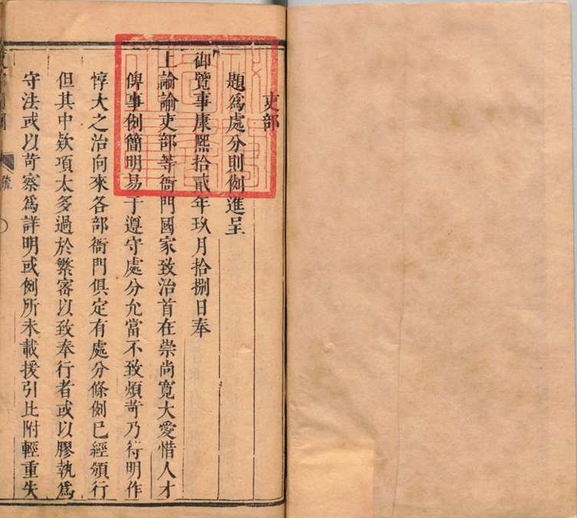 吏部
題爲處分則例進呈
御覽事康熙拾貳年玖月拾捌日奉
上諭諭吏部等衙門國家致治首在崇尚寬大愛惜人才
俾事例簡明易于遵守處分允當不致煩苛乃符明作
惇大之治向來各部衙門俱定有處分條例已經頒行
但其中欵項太多過於繁密以致奉行者或以膠執爲
守法或以苛察爲詳明或例所未載援引比附輕重失